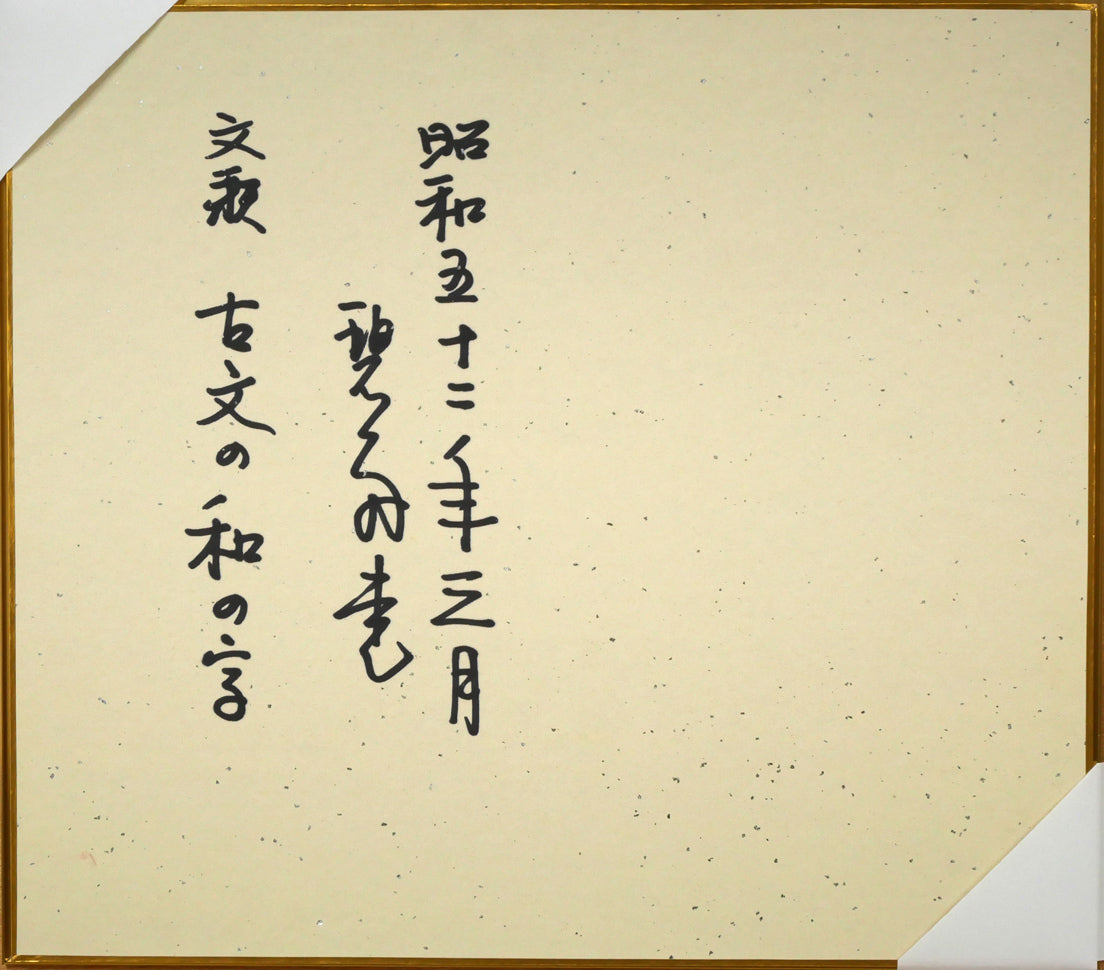 昭和五十二年三月
碧翁書
文歌　古文の和の字